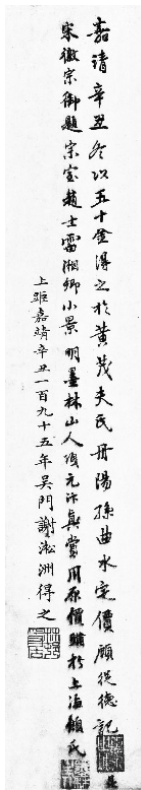 嘉靖辛丑冬以五十金得之於黄茂夫氏丹陽孫曲水定價顧從德記
宋徽宗御題宗室趙士雷湘鄉小景明墨林山人項元汴真賞用原價購於上海顧氏
上距嘉靖辛丑一百九十五年吴門謝淞洲得之